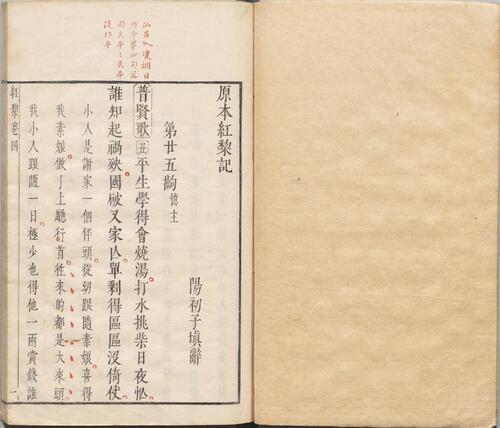 仙呂入雙調曰
原本紅棃記
陽初子填辭
第廿五齣憶主
普賢歌丑平生學得會燒湯打水挑柴日夜忙
誰知起禍殃國破又家亾單剩得區區沒倚仗
小人是謝家一個伴頭從幼跟隨素娘喜得
我素娘做了上廳行首往來的都是大來頭
我小人跟隨一日極少也得他一兩賞錢誰
紅棃卷四
一